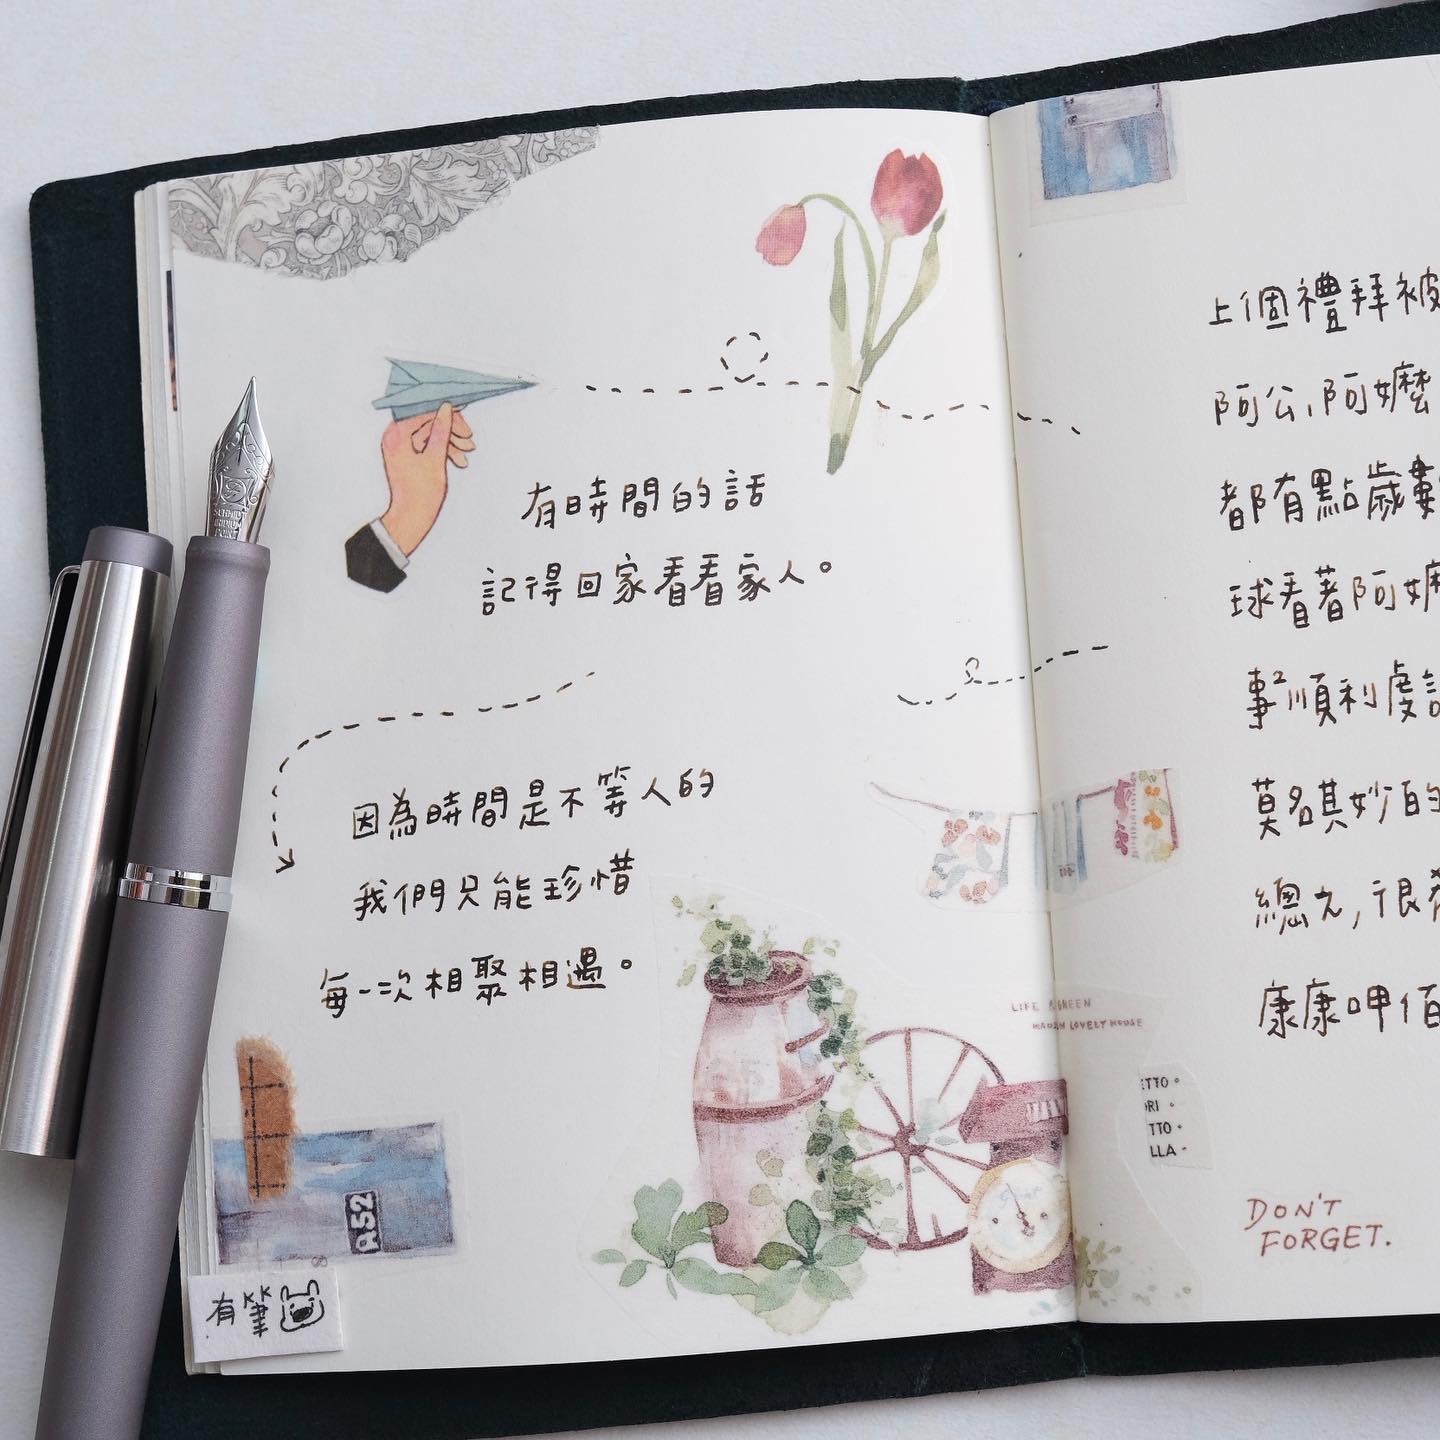 有時間的話
記得回家看看家人。
因為時間是不等人的
我們只能珍惜
每一次相聚相遇。
A52
有筆
SCHMIDT
IRIDIUM
POINT
上個禮拜被
阿公,阿嬤
都有點歲數
球看著阿嬤
事順利度
莫名其妙的
總之,很
康康呷佰
LIFE & GREEN
LOVELY HOUSE
ETTO
ORI
TTO
LLA
DON'T
FORGET.